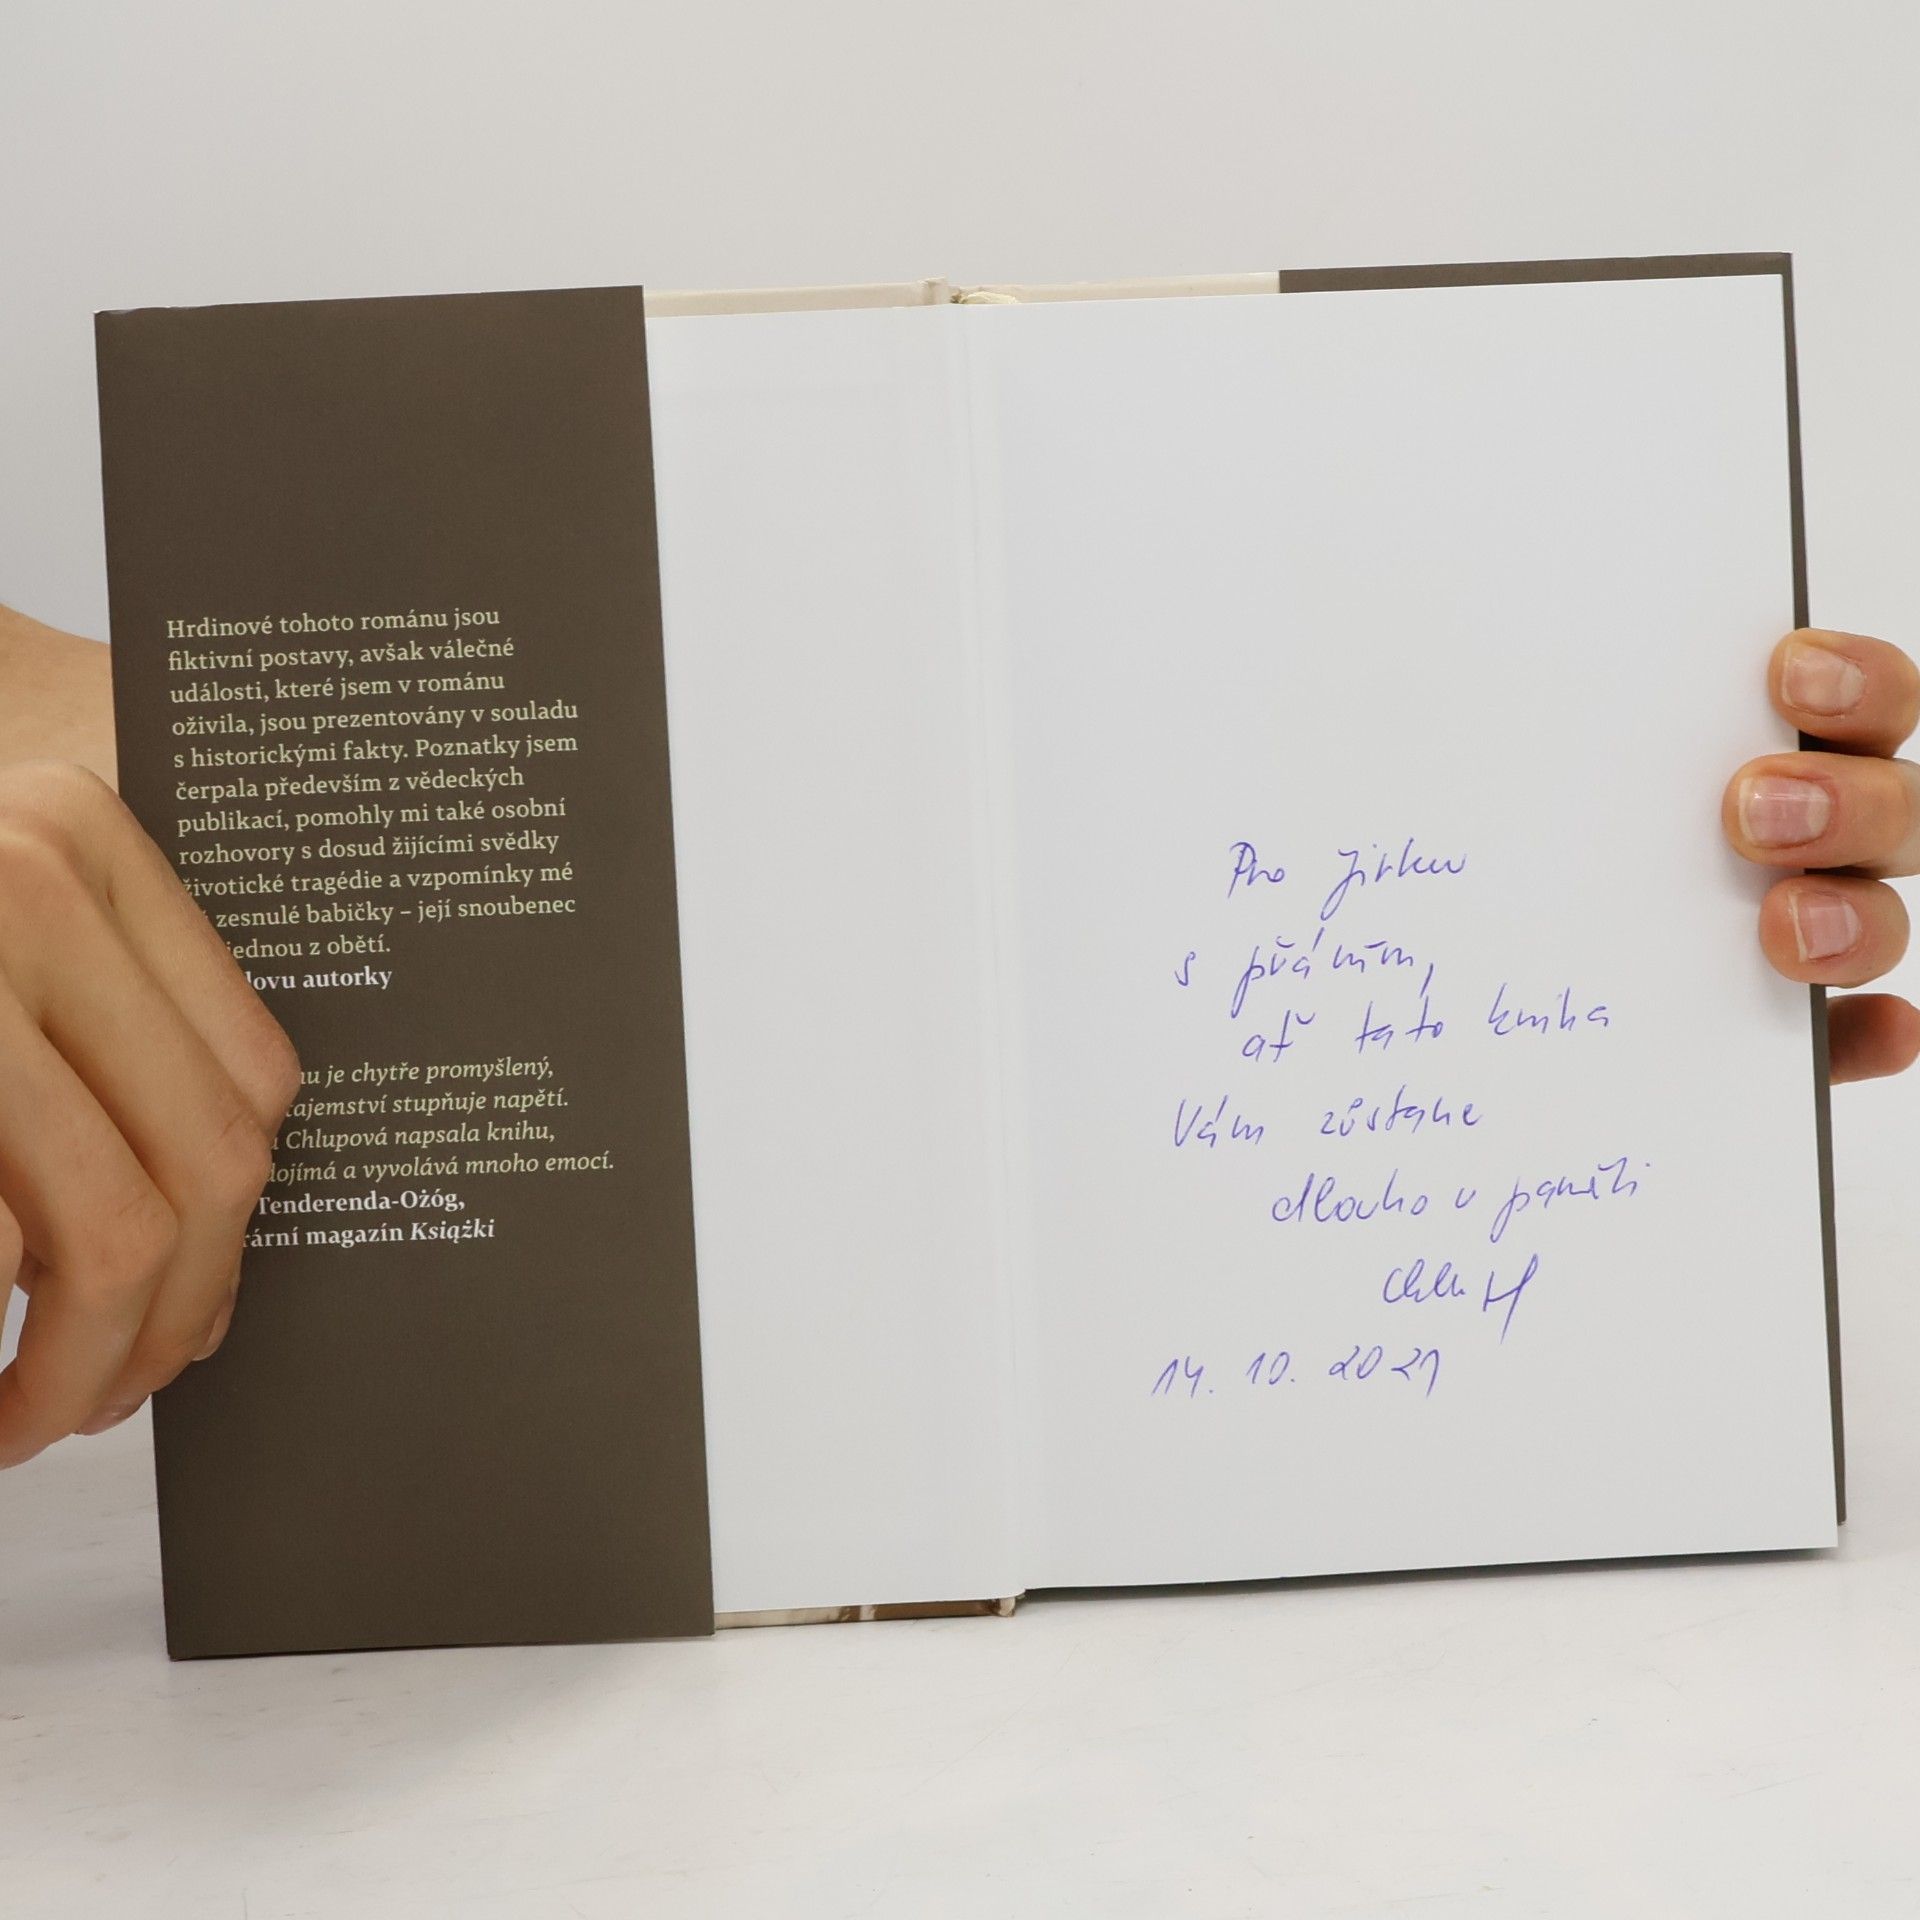 Hrdinové tohoto románu jsou
fiktivní postavy, avšak válečné
události, které jsem v románu
oživila, jsou prezentovány v souladu
s historickými fakty. Poznatky jsem
čerpala především z vědeckých
publikací, pomohly mi také osobní
rozhovory s dosud žijícími svědky
životické tragédie a vzpomínky mé
zesnulé babičky – její snoubenec
jednou z obětí.
autorky
je chytře promyšlený,
tajemství stupňuje napětí.
Chlupová napsala knihu,
dojímá a vyvolává mnoho emocí.
Tenderenda-Ożóg,
magazín Książki
Pro Jirku
s přáním,
ať tato kniha
Vám zůstane
dlouho v paměti
14. 10. 2021